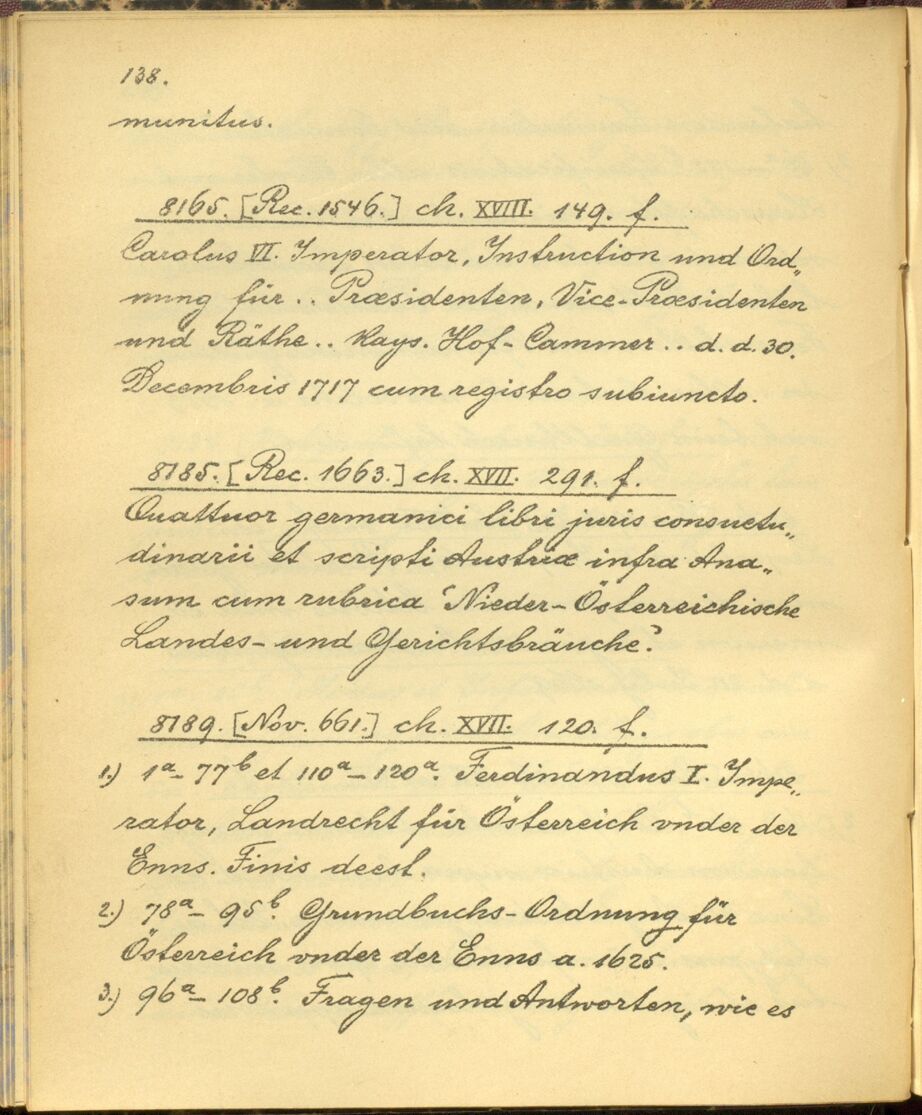 138.
munitus.
8165. [Rec. 1546.] ch. XVIII. 149. f.
Carolus VI. Imperator, Instruction und Ord„
nung für .. Præsidenten, Vice-Præsidenten
und Räthe .. Kays. Hof-Cammer .. d. d. 30.
Decembris 1717 cum registro subiuncto.
8185. [Rec. 1663.] ch. XVII. 291. f.
Quattuor germanici libri juris consuetu„
dinarii et scripti Austriæ infra Ana„
sum cum rubrica 'Nieder-Österreichische
Landes- und Gerichtsbräuche'.
8189. [Nov. 661.] ch. XVII. 120. f.
1.) 1a- 77b et 110a- 120a. Ferdinandus I. Impe„
rator, Landrecht für Österreich vnder der
Enns. Finis deest.
2.) 78a- 95b. Grundbuchs-Ordnung für
Österreich vnder der Enns a. 1625.
3.) 96a- 108b. Fragen und Antworten, wie es